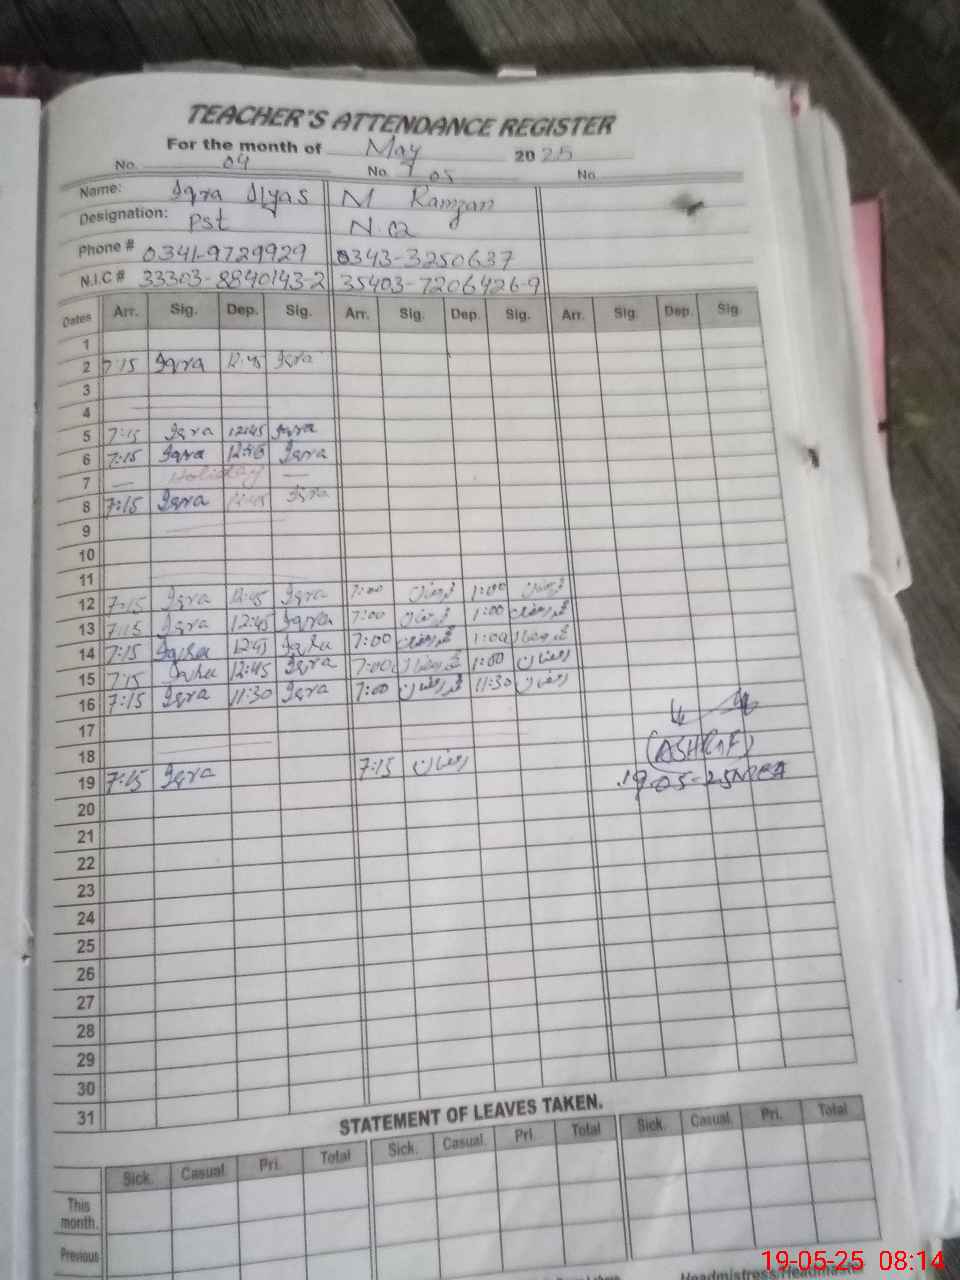 TEACHER'S ATTENDANCE REGISTER
For the month of May 2025
No. 04 No. 05 No.
Name: Iqra Ilyas M Ramzan
Designation: Pst N.Q
Phone # 0341-9729929 0343-3250637
N.I.C # 33303-8840143-2 35403-7206426-9
Dates Arr. Sig. Dep. Sig. Arr. Sig. Dep. Sig. Arr. Sig. Dep. Sig
1
2 7:15 Iqra 12:45 Iqra
3
4
5 7:15 Iqra 12:45 Iqra
6 7:15 Iqra 12:45 Iqra
7 — Holiday —
8 7:15 Iqra 12:45 Iqra
9
10
11
12 7:15 Iqra 12:45 Iqra 7:00 1:00
13 7:15 Iqra 12:45 Iqra 7:00 محمد رمضان 1:00 محمد رمضان
14 7:15 Iqra 12:45 Iqra 7:00 محمد رمضان 1:00 محمد رمضان
15 7:15 Iqra 12:45 Iqra 7:00 محمد رمضان 1:00 رمضان
16 7:15 Iqra 11:30 Iqra 7:00 محمد رمضان 11:30 رمضان
17
18
(ASHRAF)
19 7:15 Iqra 7:15 رمضان
19-05-25 MEA
20
21
22
23
24
25
26
27
28
29
30
31
STATEMENT OF LEAVES TAKEN.
Sick. Casual. Pri. Total Sick. Casual. Pri. Total Sick. Casual. Pri. Total
This month.
Previous
Headmistress/Headmaster
19-05-25 08:14